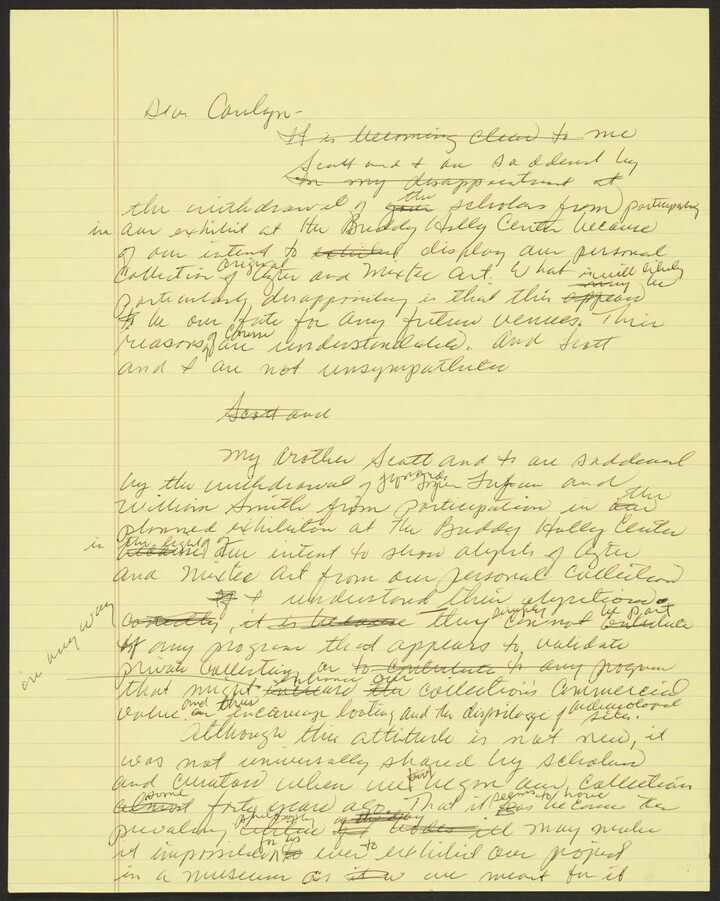 Dear Carolyn-
It is becoming clear to me
Scott and I are saddened by
In my disappointment at
the withdrawal of your the scholars from participating
in our exhibit at the Buddy Holly Center because
of our intent to exhibit display our personal
collection of original Aztec and Mixtec Art. What
particularly disappointing is that this will likely be
to be our fate for any future venues. Their
reasons of course are understandable. And Scott
and I are not unsympathetic
Scott and
My brother Scott and I are saddened
by the withdrawal of and
William Smith from participation in our the
planned exhibition at the Buddy Holly Center
in the light of because our intent to show objects of Aztec
and Mixtec Art from our personal collection
If I understand their objections
correctly, it is because they simply cannot contribute be part
of any program that appears to validate
in any way
private collecting or to contribute to any program
that might enhance our collection's commercial
value and thus encourage looting and the despoilage of archaeological sites.
Although this attitude is not new, it
was not universally shared by scholars
and curators when we first began our collection
almost some forty years ago. That it seems to have has become the
prevailing philosophy of the day may make
it impossible for us to ever to exhibit our project
in a museum as we meant for it